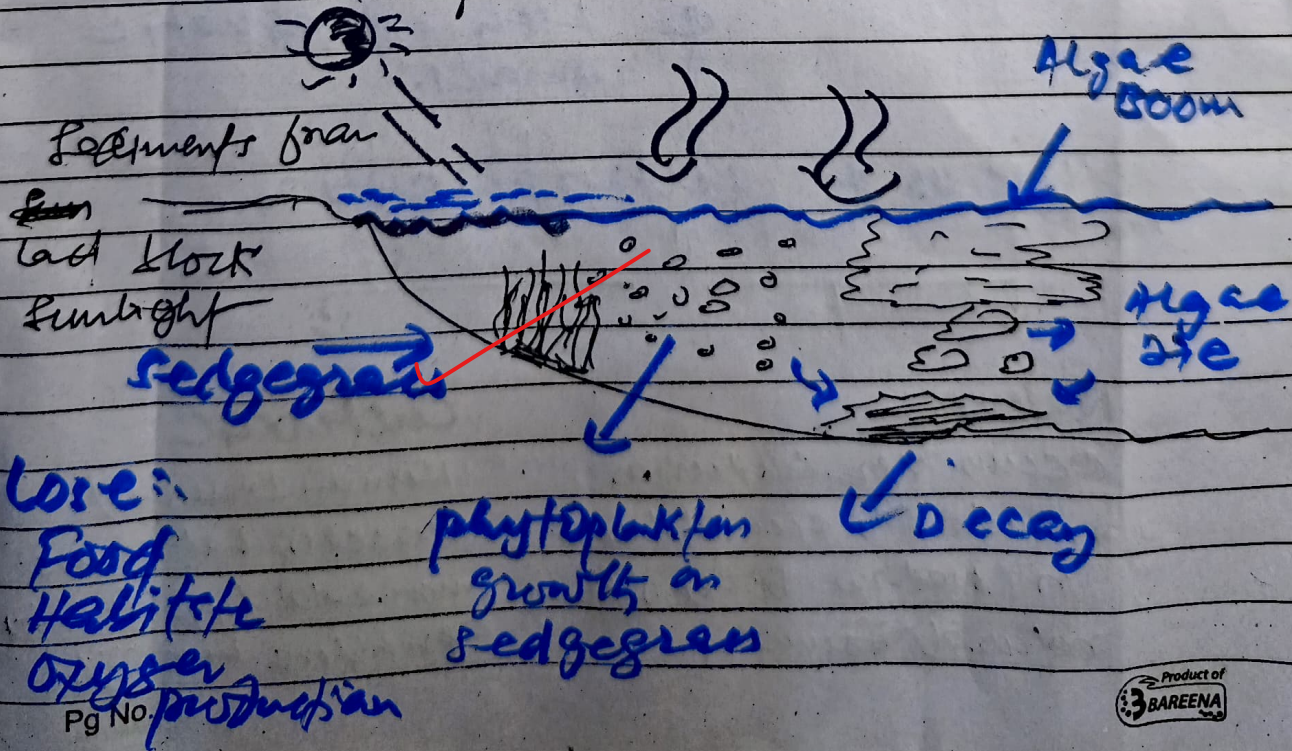 Algae
Boom
Sediments from
land block
Sunlight
Sedgegrass
Algae
die
Lose:
Food
Habitate
Oxygen
production
phytoplankton
growth on
sedgegrass
Decay
Pg No.
Product of
3 BAREENA